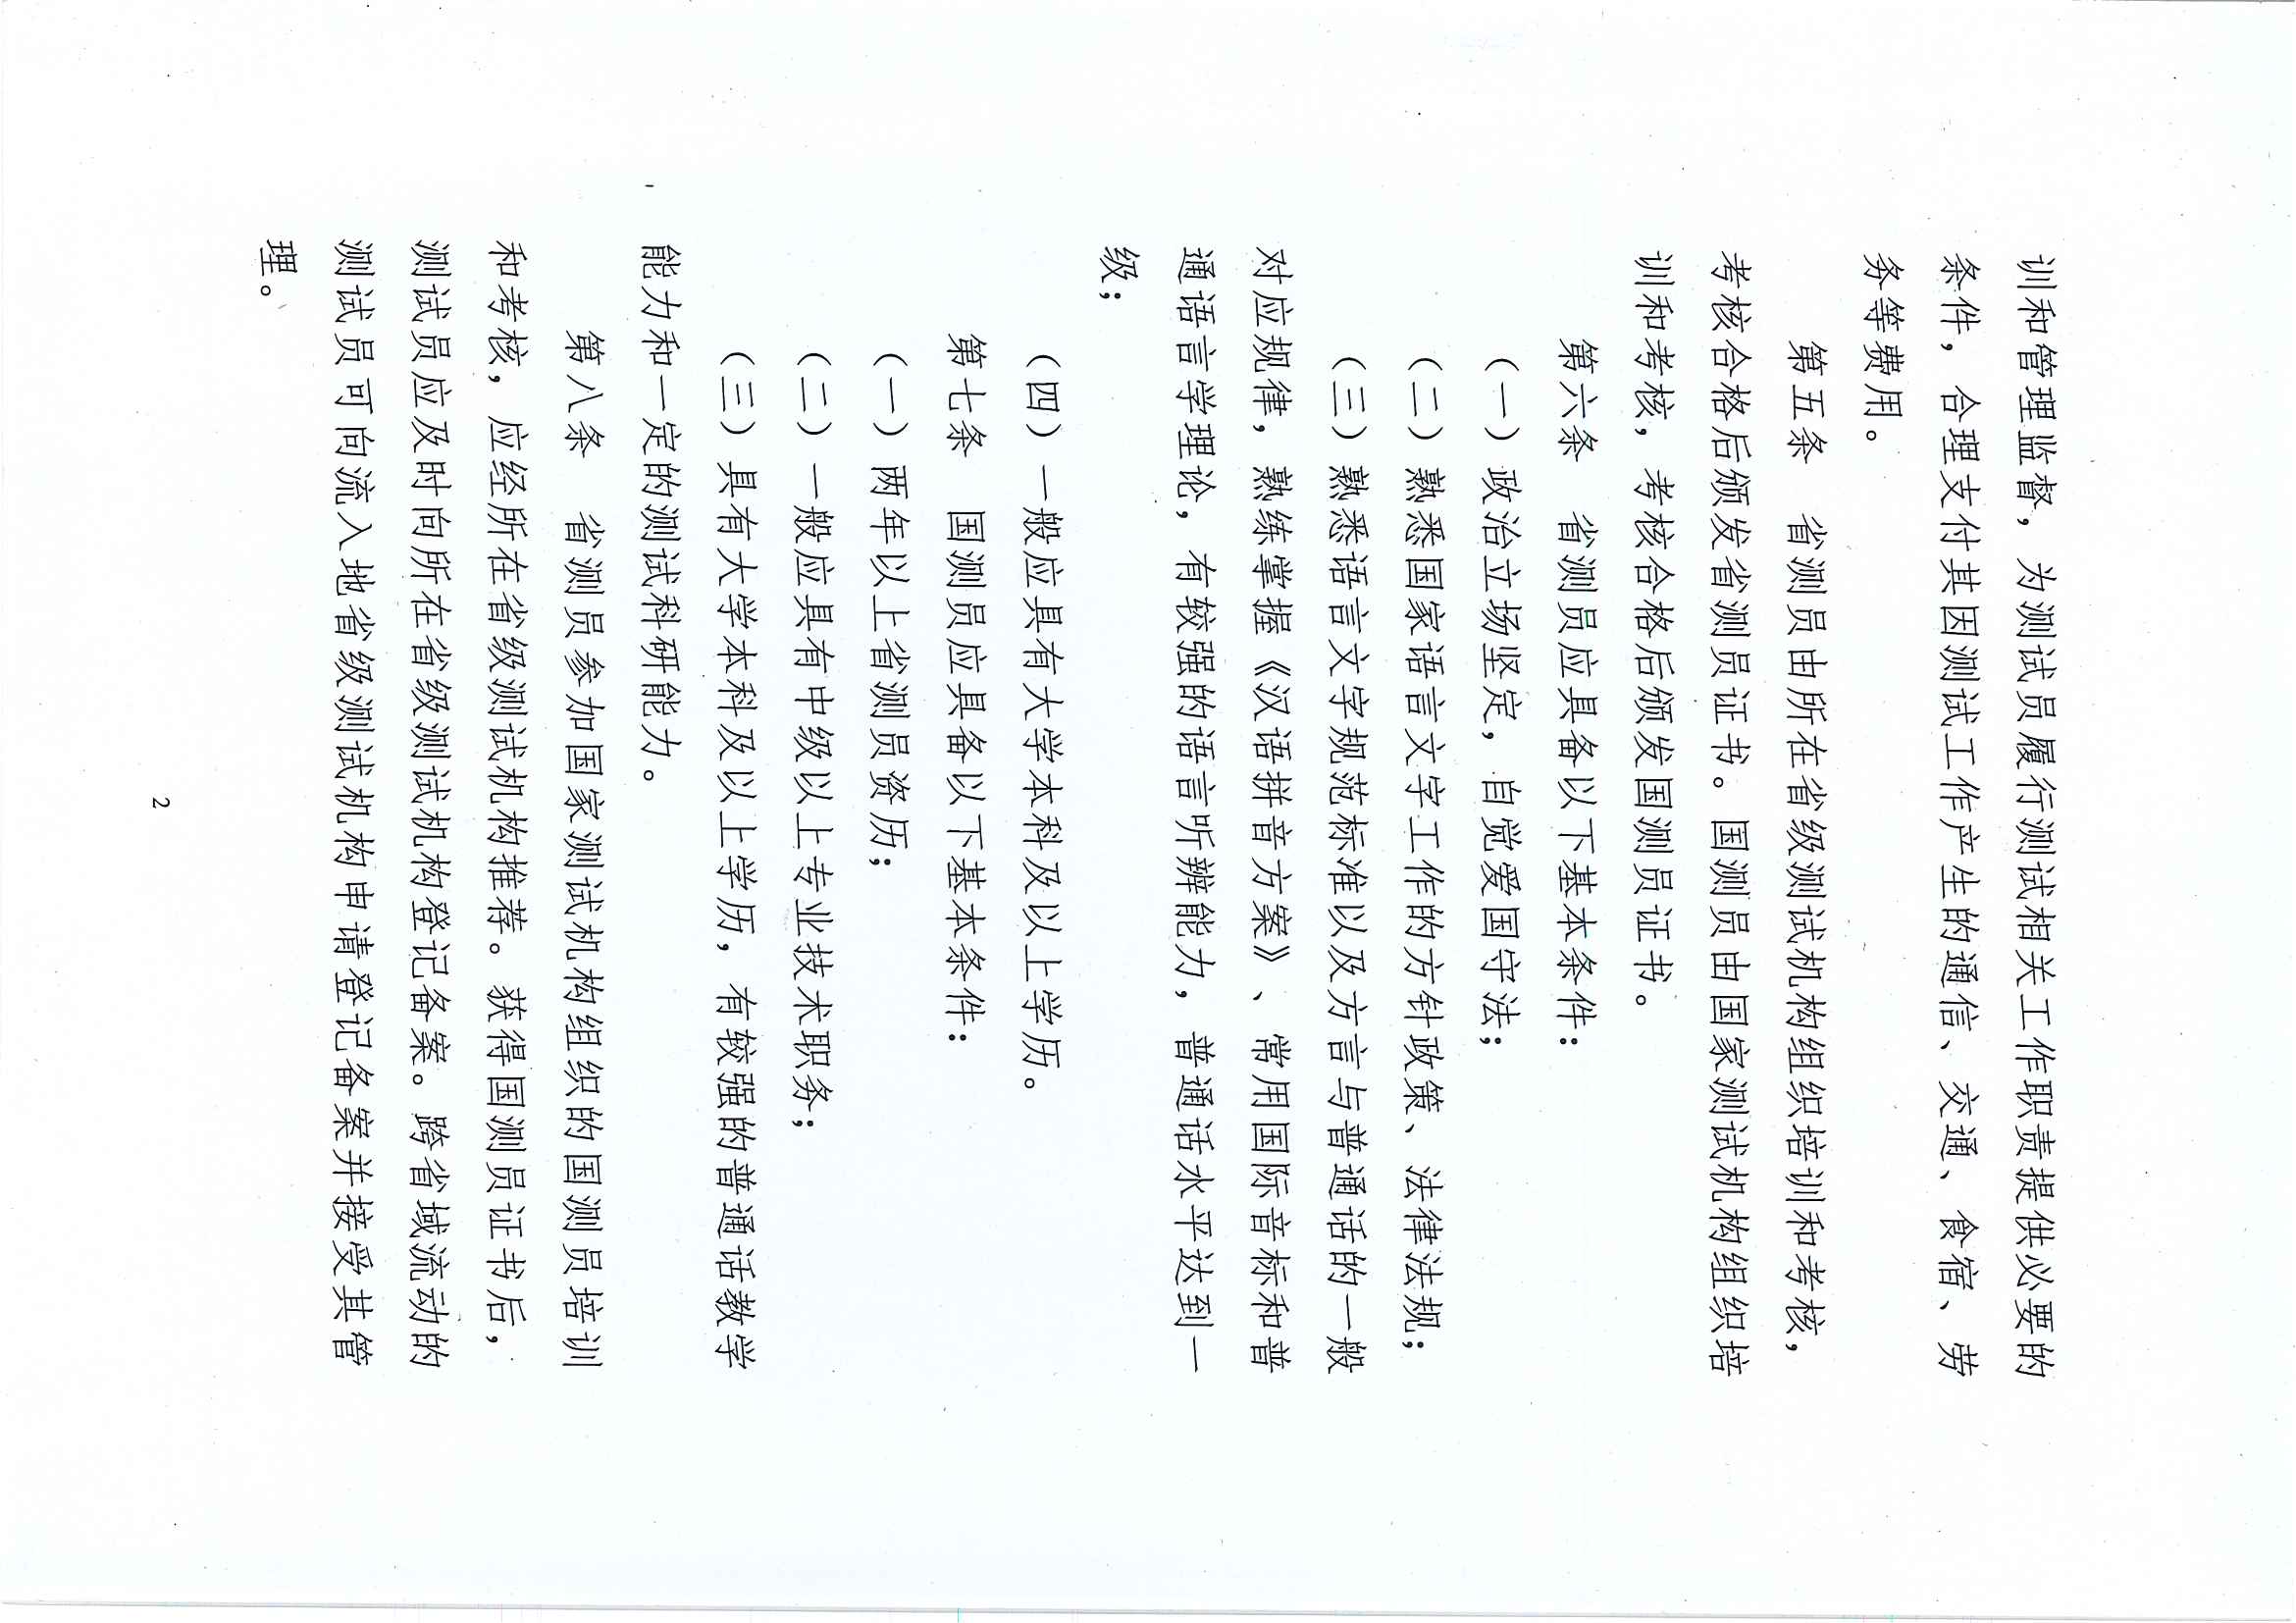 训和管理监督，为测试员履行测试相关工作职责提供必要的
条件，合理支付其因测试工作产生的通信、交通、食宿、劳
务等费用。
第五条　省测员由所在省级测试机构组织培训和考核，
考核合格后颁发省测员证书。国测员由国家测试机构组织培
训和考核，考核合格后颁发国测员证书。
第六条　省测员应具备以下基本条件：
（一）政治立场坚定，自觉爱国守法；
（二）熟悉国家语言文字工作的方针政策、法律法规；
（三）熟悉语言文字规范标准以及方言与普通话的一般
对应规律，熟练掌握《汉语拼音方案》、常用国际音标和普
通话语言学理论，有较强的语言听辨能力，普通话水平达到一
级；
（四）一般应具有大学本科及以上学历。
第七条　国测员应具备以下基本条件：
（一）两年以上省测员资历；
（二）一般应具有中级以上专业技术职务；
（三）具有大学本科及以上学历，有较强的普通话教学
能力和一定的测试科研能力。
第八条　省测员参加国家测试机构组织的国测员培训
和考核，应经所在省级测试机构推荐。获得国测员证书后，
测试员应及时向所在省级测试机构登记备案。跨省域流动的
测试员可向流入地省级测试机构申请登记备案并接受其管
理。
2